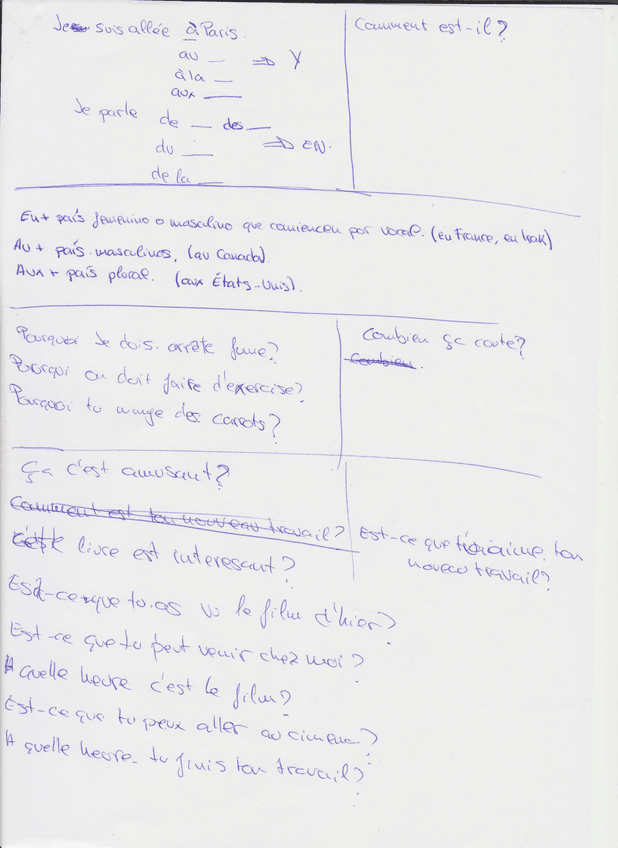 Je suis allée à Paris.
au __ => Y
à la __
aux ___
Je parle de __ des __
du ___ => EN.
de la ___
Comment est-il?
En + país femenino o masculino que comiencen por vocal. (en France, en Irak)
Au + país masculinos, (au Canada).
Aux + país plural. (aux États-Unis).
Pourquoi Je dois arrête fume?
Pourqui on doit faire d'exercise?
Pourquoi tu mange des carrots?
Combien ça coute?
Combien.
Ça c'est amusant?
Comment est ton nouveau travail?
livre est interesant?
Est-ce que ton
noveau travail?
Est-ce que tu as vu le film d'hier?
Est-ce que tu peut venir chez moi?
A quelle heure c'est le film?
Est-ce que tu peux aller au cinema?
A quelle heure tu finis ton travail?